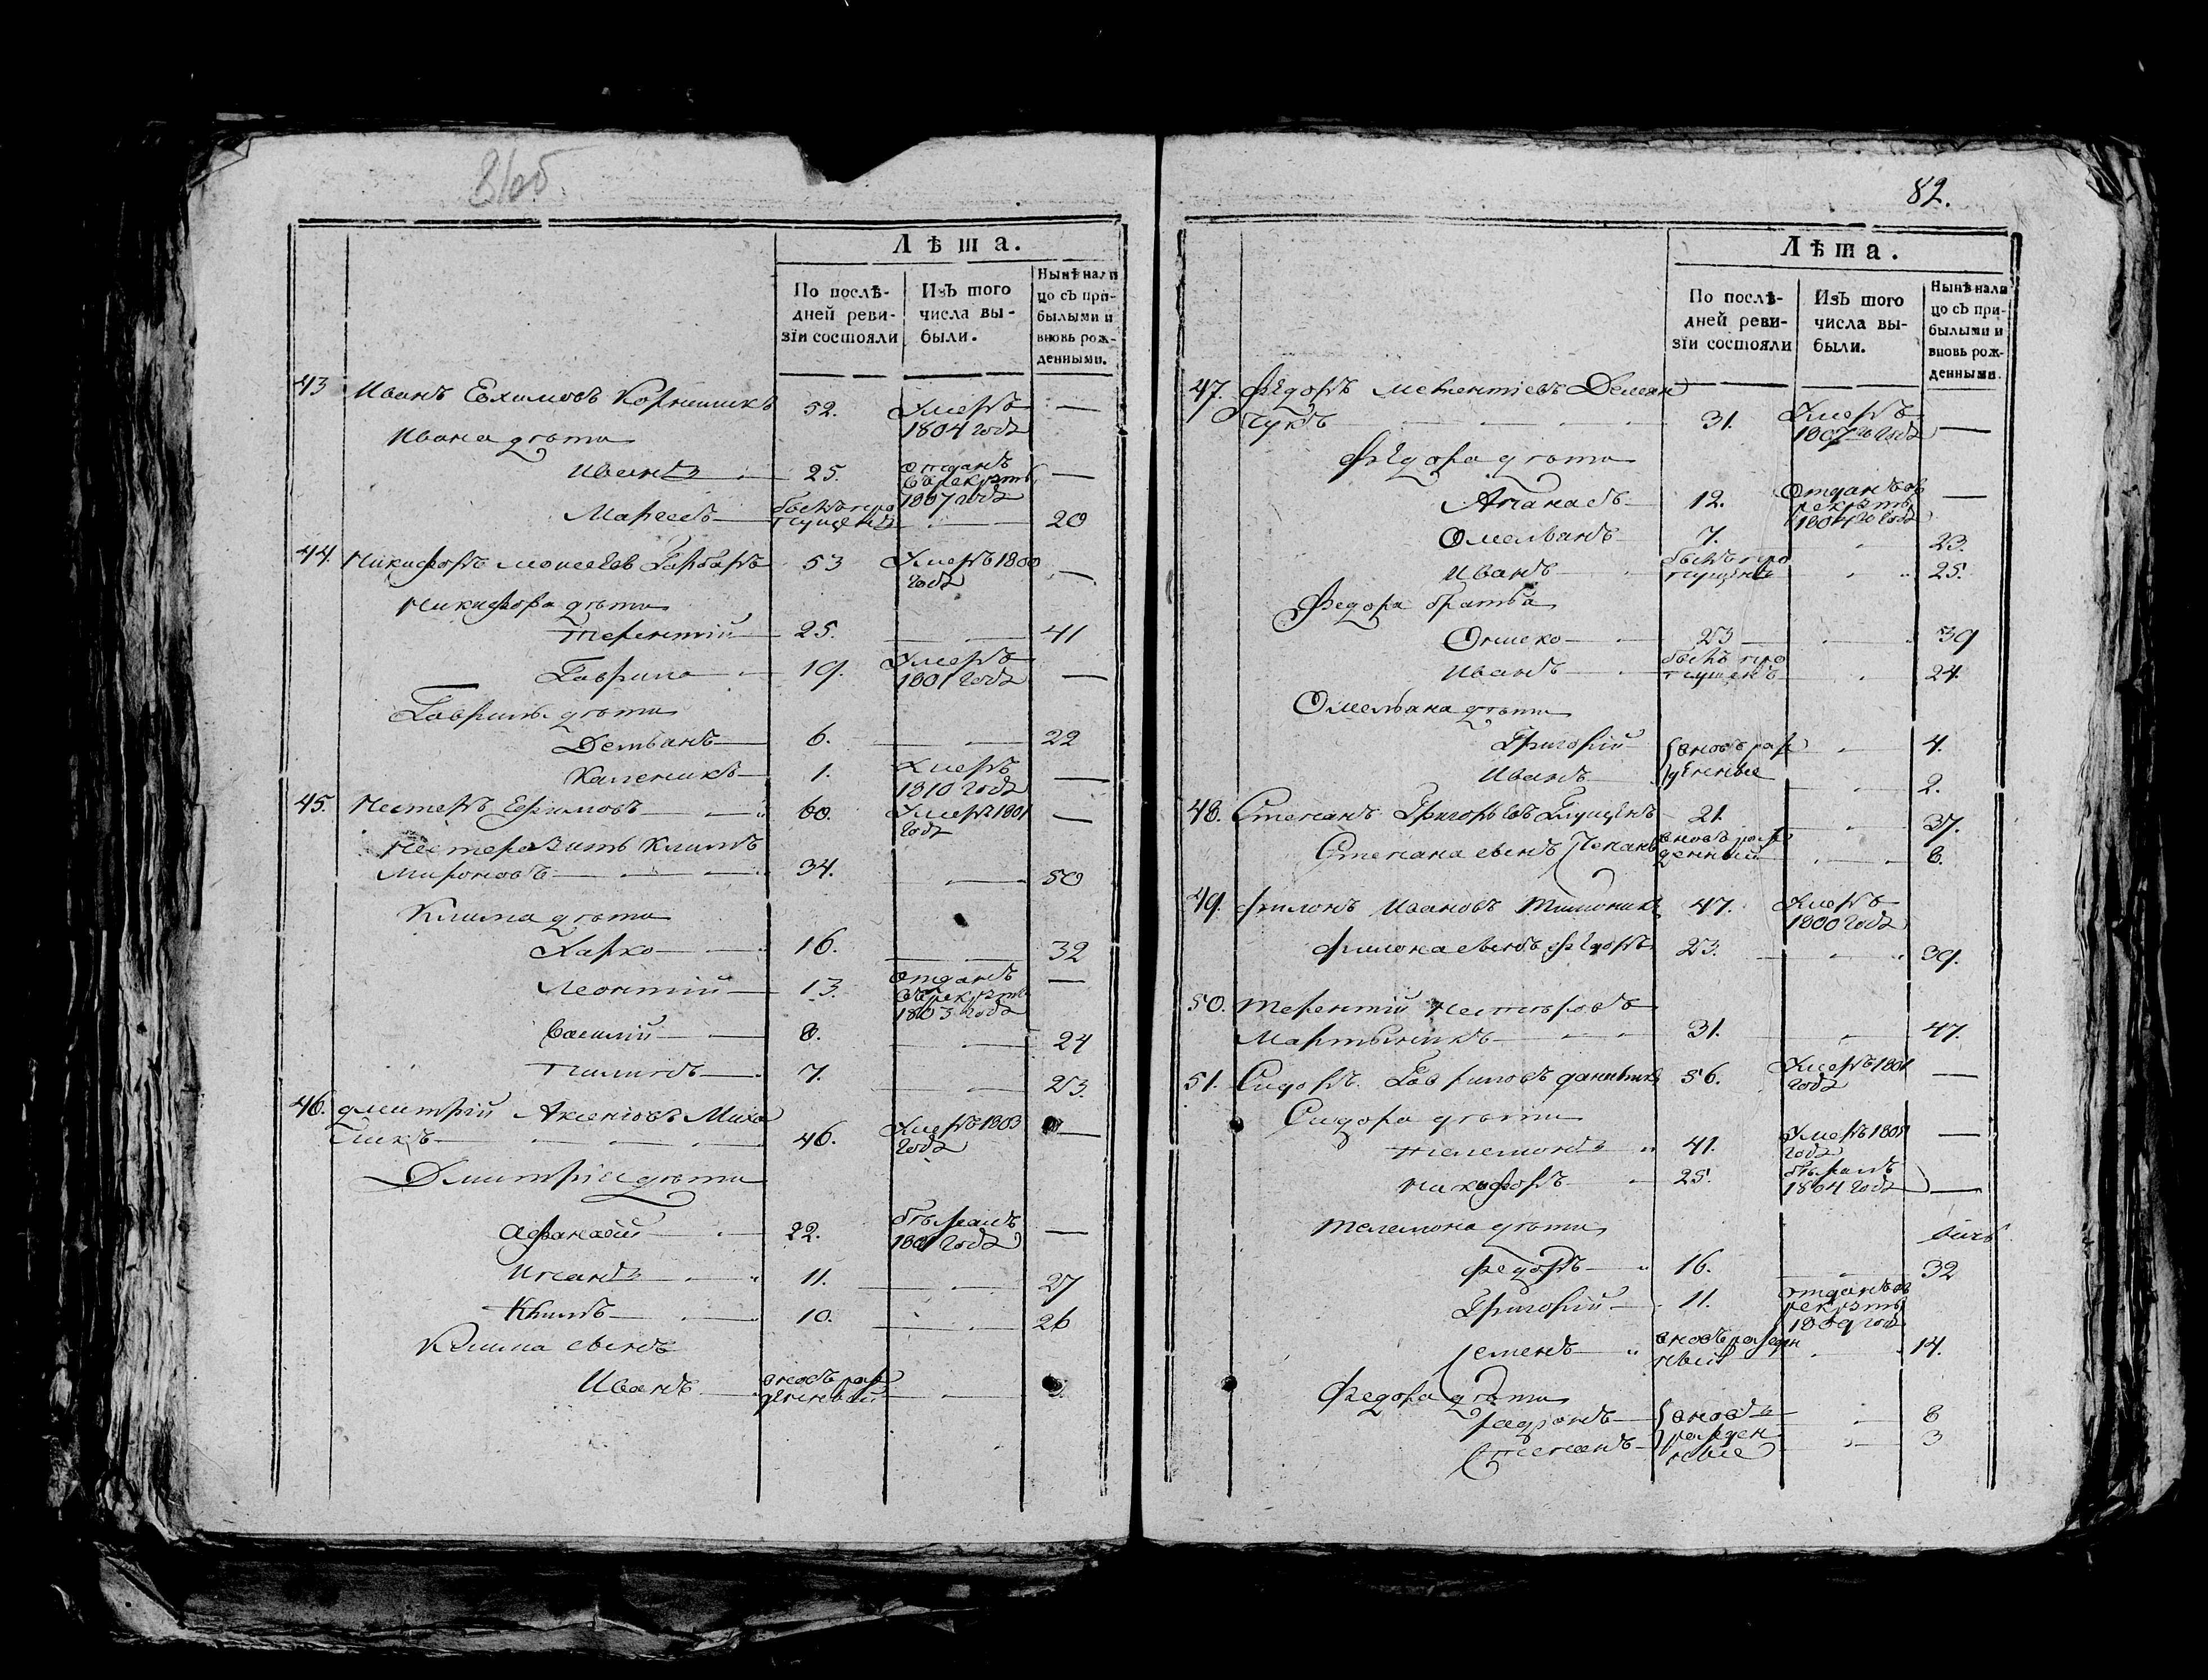 81об
Лѣта.
По послѣ-
дней реви-
зїи состояли
Изъ того
числа вы-
были.
Нынѣ нали
цо съ при-
былыми и
вновь рож-
денными.
43 Иванъ Евхимовъ Корнишикъ 52. Умеръ 1804 года —
Ивана дѣти
Иванъ 25. отданъ въ рекруты 1807 года —
Мафеей бывъ пропущенъ 20
44. Никифоръ Моисеевъ Гарбаръ 53 Умеръ 1800 года —
Никифора дѣти
Терентій 25. 41
Гаврило 19. Умеръ 1801 года —
Гаврилы дѣти
Демьянъ 6. 22
Каленикъ 1. Умеръ 1810 года —
45. Нестеръ Ефимовъ 60. Умеръ 1801 года —
Нестера зять Климъ
Мироновъ 34. 50
Клима дѣти
Харко 16. 32
Леонтій 13. отданъ въ рекруты 1803 года —
Василій 8. 24
Пилипъ 7. 23.
46. Дмитрій Аксентовъ Миха
46. Умеръ 1803 года —
Дмитрія дѣти
Афанасій 22. бѣжалъ 1801 года —
Иванъ 11. 27
Климъ 10. 26
Клима сынъ
Иванъ вновь рожденный
82.
Лѣта.
По послѣ-
дней реви-
зїи состояли
Изъ того
числа вы-
были.
Нынѣ нали
цо съ при-
былыми и
вновь рож-
денными.
47. Федоръ Мекентіевъ Демян
чукъ 31. Умеръ 1807 го года —
Федора дѣти
Апанасъ 12. Отданъ въ рекруты 1804 го года —
Омельянъ 7. 23.
Иванъ бывъ пропущенъ 25.
Федора братья
Ониско 23 39
Иванъ бывъ пропущенъ 24.
Омельяна дѣти
Григорій вновь рож 4.
Иванъ денные 2.
48. Степанъ Григорьевъ Глущенъ 21. 37.
Степана сынъ Степанъ вновь рожденный 8.
49. Филонъ Ивановъ 47. Умеръ 1800 года
Филона сынъ Федоръ 23. 39.
50. Терентій Нестеровъ
Мартынникъ 31. 47.
51. Сидоръ Гавриловъ 56. Умеръ 1801 года —
Сидора дѣти
Пелемонъ 41. Умеръ года —
Никифоръ 25. бѣжалъ 1804 года —
Пелемона дѣти
Федоръ 16. 32
Григорій 11. отданъ въ рекруты 1809 года
Семенъ вновь рожденный 14.
Федора дѣти
вновь 8
Степанъ рожденные 3